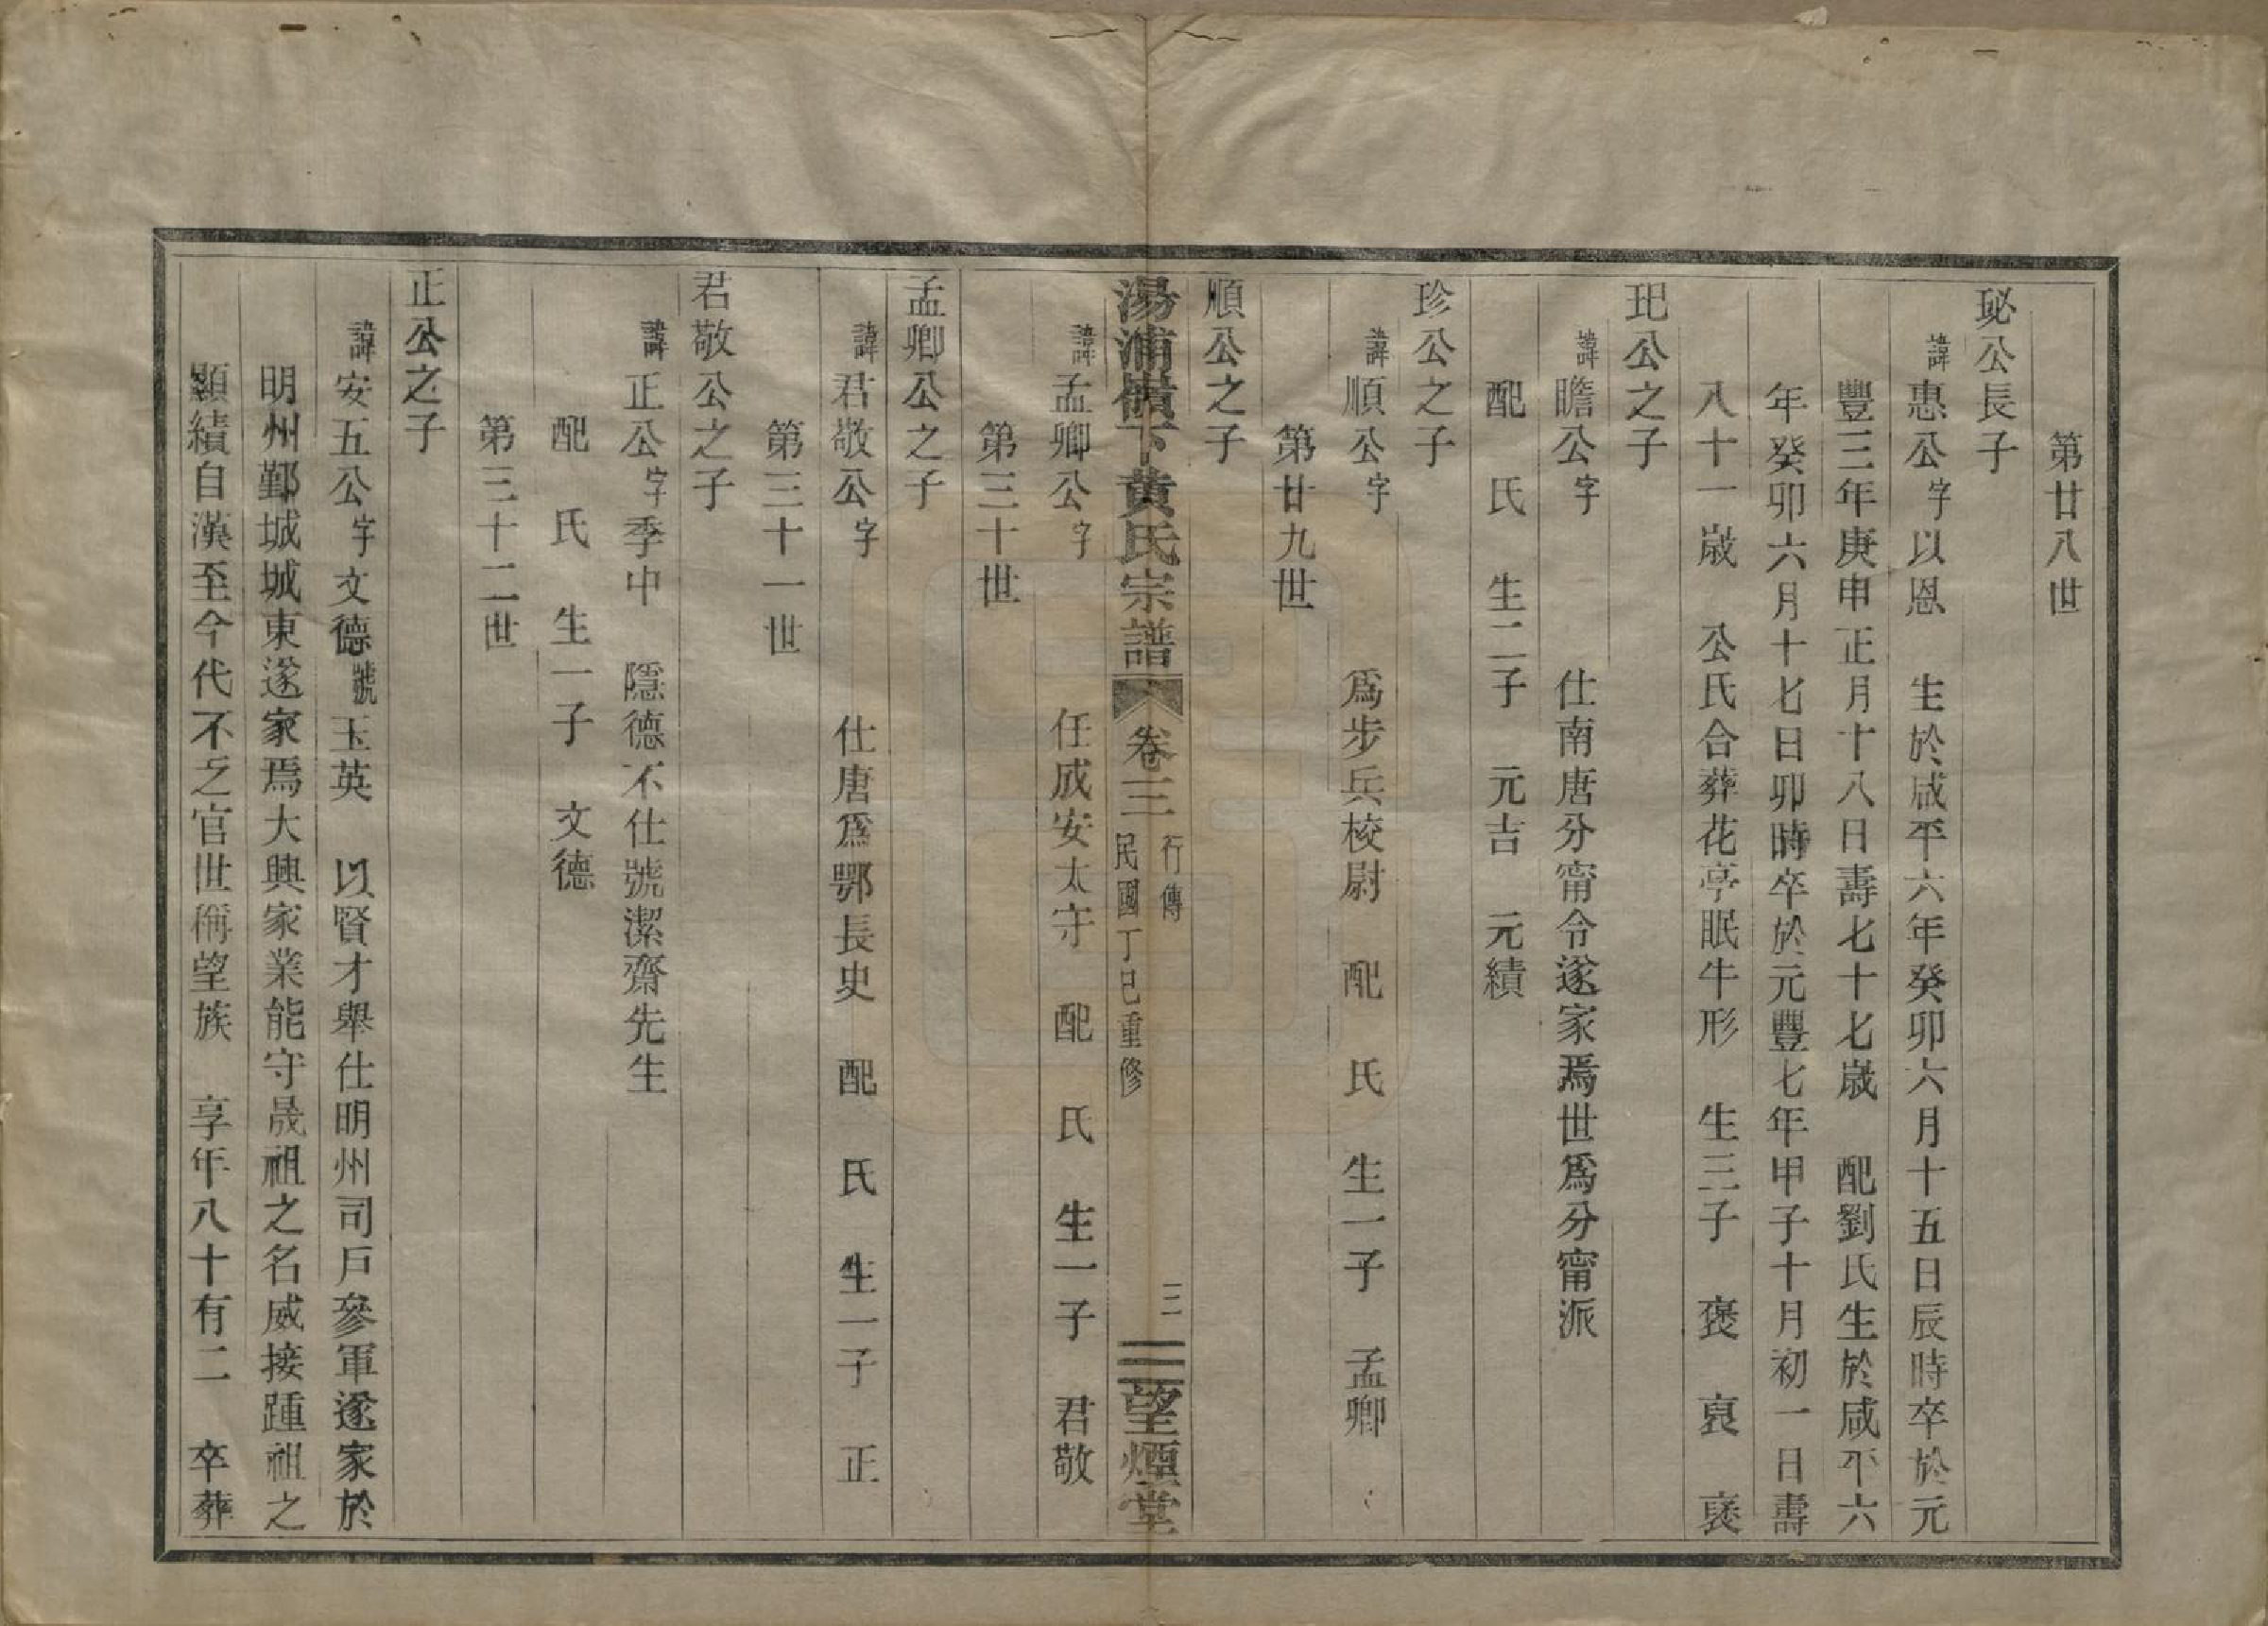 第廿八世
珌公長子
諱惠公字以恩　生於咸平六年癸卯六月十五日辰時卒於元
豐三年庚申正月十八日壽七十七歲　配劉氏生於咸平六
年癸卯六月十七日卯時卒於元豐七年甲子十月初一日壽
八十一歲　公氏合葬花亭眠牛形　生三子　褒　裒　襃
玘公之子
諱瞻公字　仕南唐分甯令遂家焉世爲分甯派
配　氏　生二子　元吉　元績
珍公之子
諱順公字　爲步兵校尉　配　氏　生一子　孟卿
第廿九世
順公之子
湯浦嶺下黄氏宗譜　卷三　行傳　民國丁巳重修　三　望煙堂
諱孟卿公字　任成安太守　配　氏　生一子　君敬
第三十世
孟卿公之子
諱君敬公字　仕唐爲鄂長史　配　氏　生一子　正
第三十一世
君敬公之子
諱正公字季中　隱德不仕號潔齋先生
配　氏　生一子　文德
第三十二世
正公之子
諱安五公字文德號玉英　以賢才舉仕明州司戶參軍遂家於
明州鄞城城東遂家焉大興家業能守晟祖之名威接踵祖之
顯績自漢至今代不乏官世稱望族　享年八十有二　卒葬